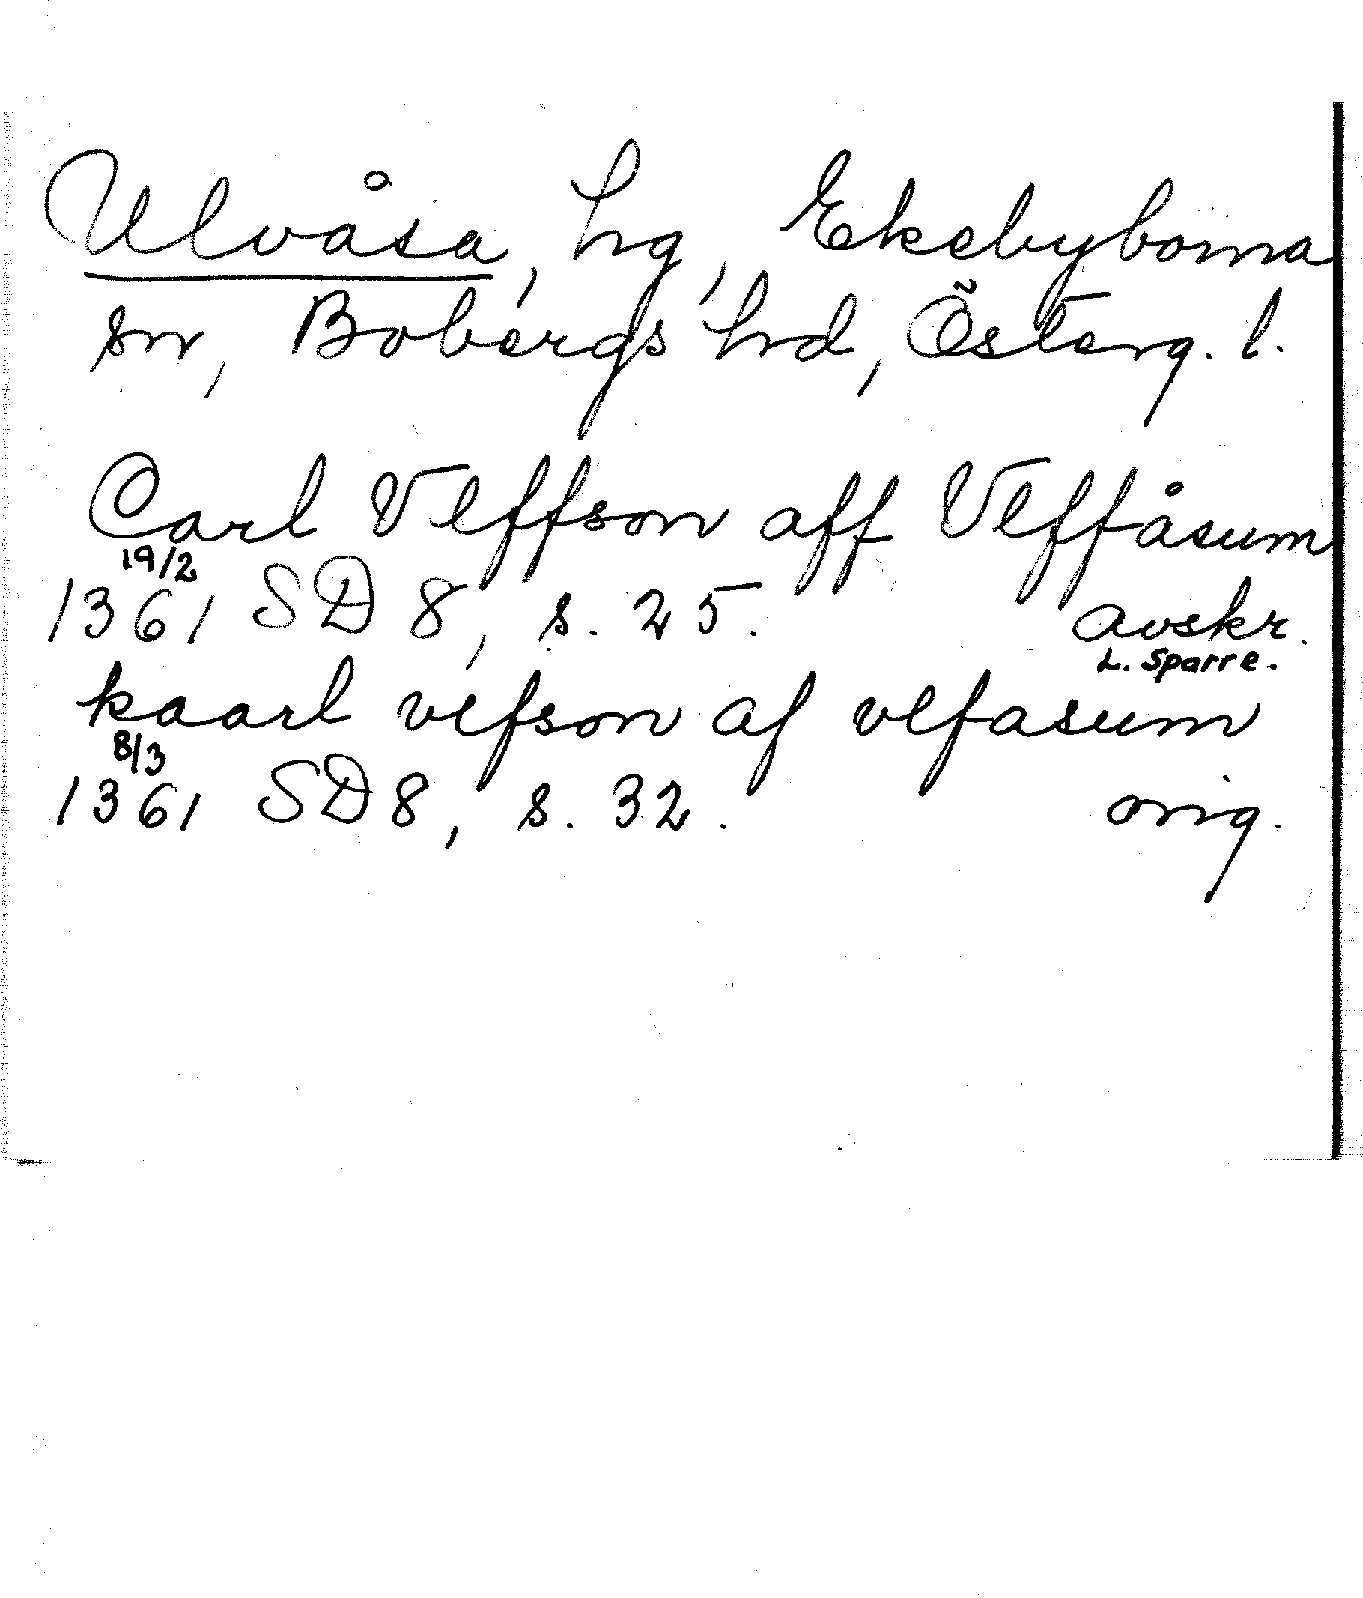 Ulvåsa, hg, Ekebyborna
sn, Bobergs hrd, Österg. l.
Carl Vlffson aff Vlffåsum
19/2
1361 SD 8, s. 25. avskr.
L. Sparre.
kaarl vlfson af vlfasum
8/3
1361 SD 8, s. 32. orig.